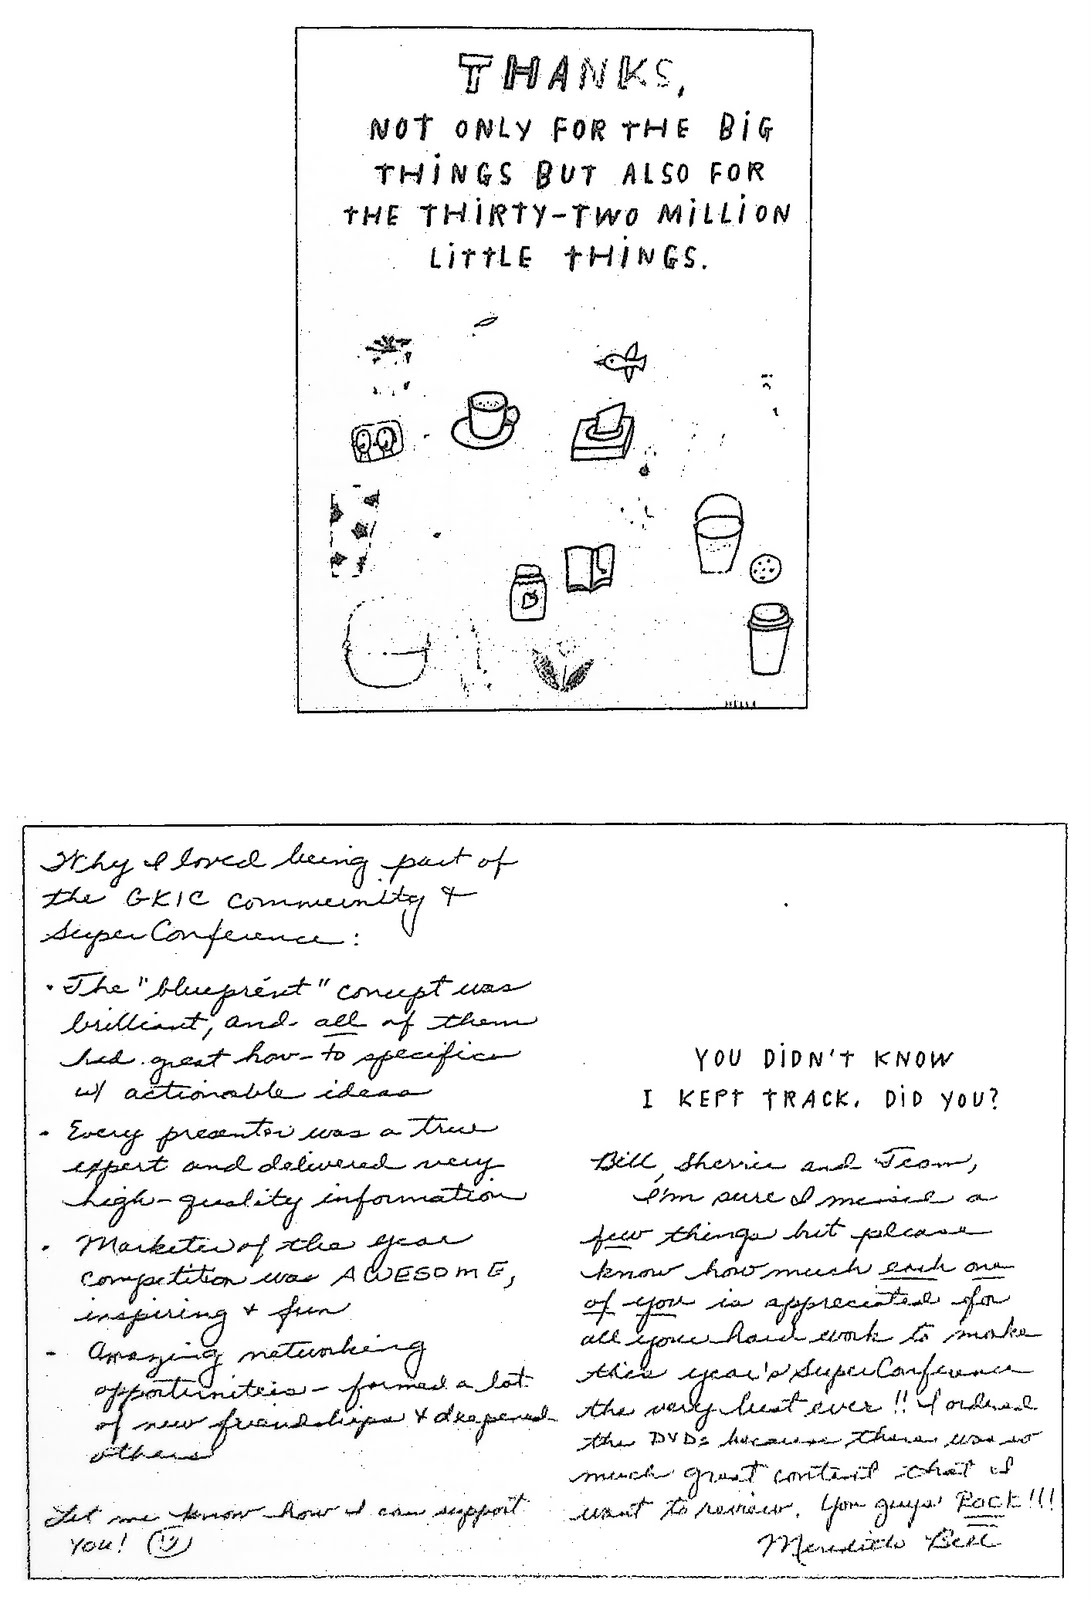 THANKS,
NOT ONLY FOR THE BIG
THINGS BUT ALSO FOR
THE THIRTY-TWO MILLION
LITTLE THINGS.
Why I loved being part of
the GKIC Community &
SuperConference:
• The "blueprint" concept was
brilliant, and all of them
had great how-to specifics
w/ actionable ideas
• Every presenter was a true
expert and delivered very
high-quality information
• Marketer of the Year
competition was AWESOME,
inspiring & fun
• Amazing networking
opportunities - formed a lot
of new friendships & deepened
others
Let me know how I can support
you!
YOU DIDN'T KNOW
I KEPT TRACK. DID YOU?
Bill, Sherrie and Team,
I'm sure I missed a
few things but please
know how much each one
of you is appreciated for
all your hard work to make
this year's SuperConference
the very best ever!! I ordered
the DVDs because there was so
much great content that I
want to review. You guys Rock!!!
Meredith Bell